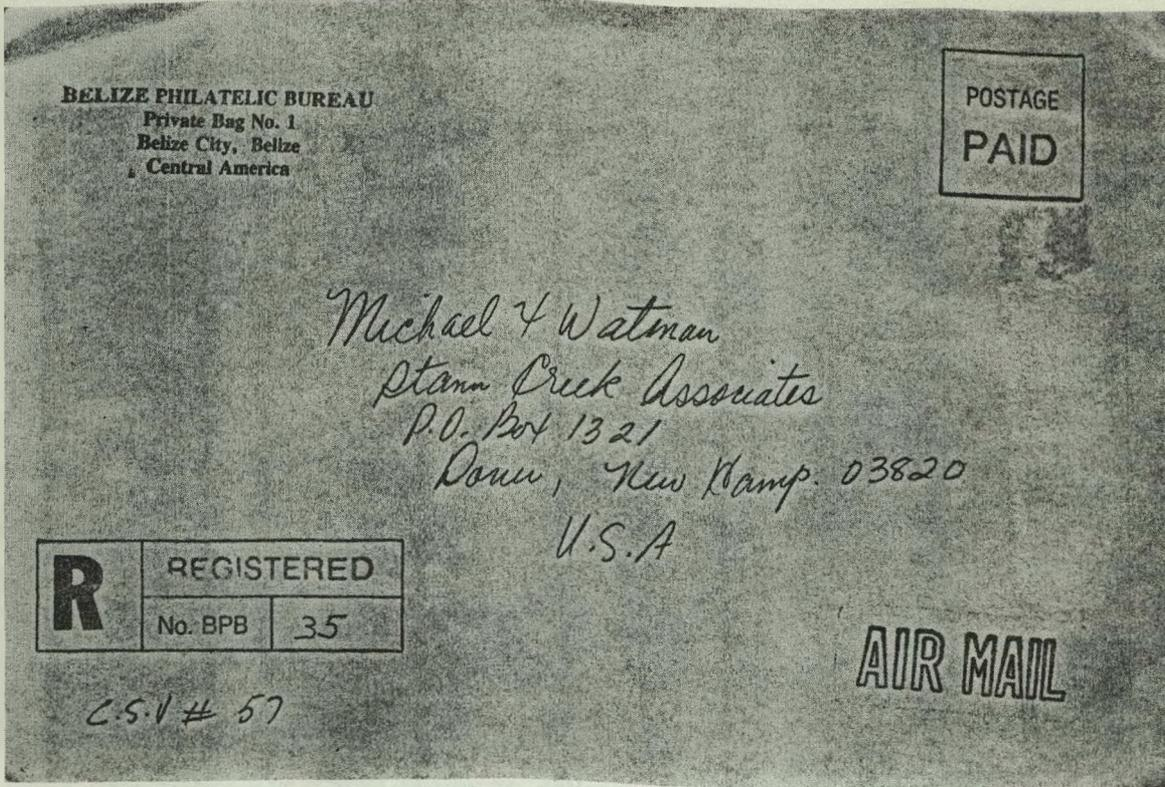 BELIZE PHILATELIC BUREAU
Private Bag No. 1
Belize City, Belize
Central America
POSTAGE
PAID
Michael Y Watman
Stann Creek Associates
P.O. Box 1321
Dover, New Hamp. 03820
U.S.A
R
REGISTERED
No. BPB 35
AIR MAIL
C.S.V # 57